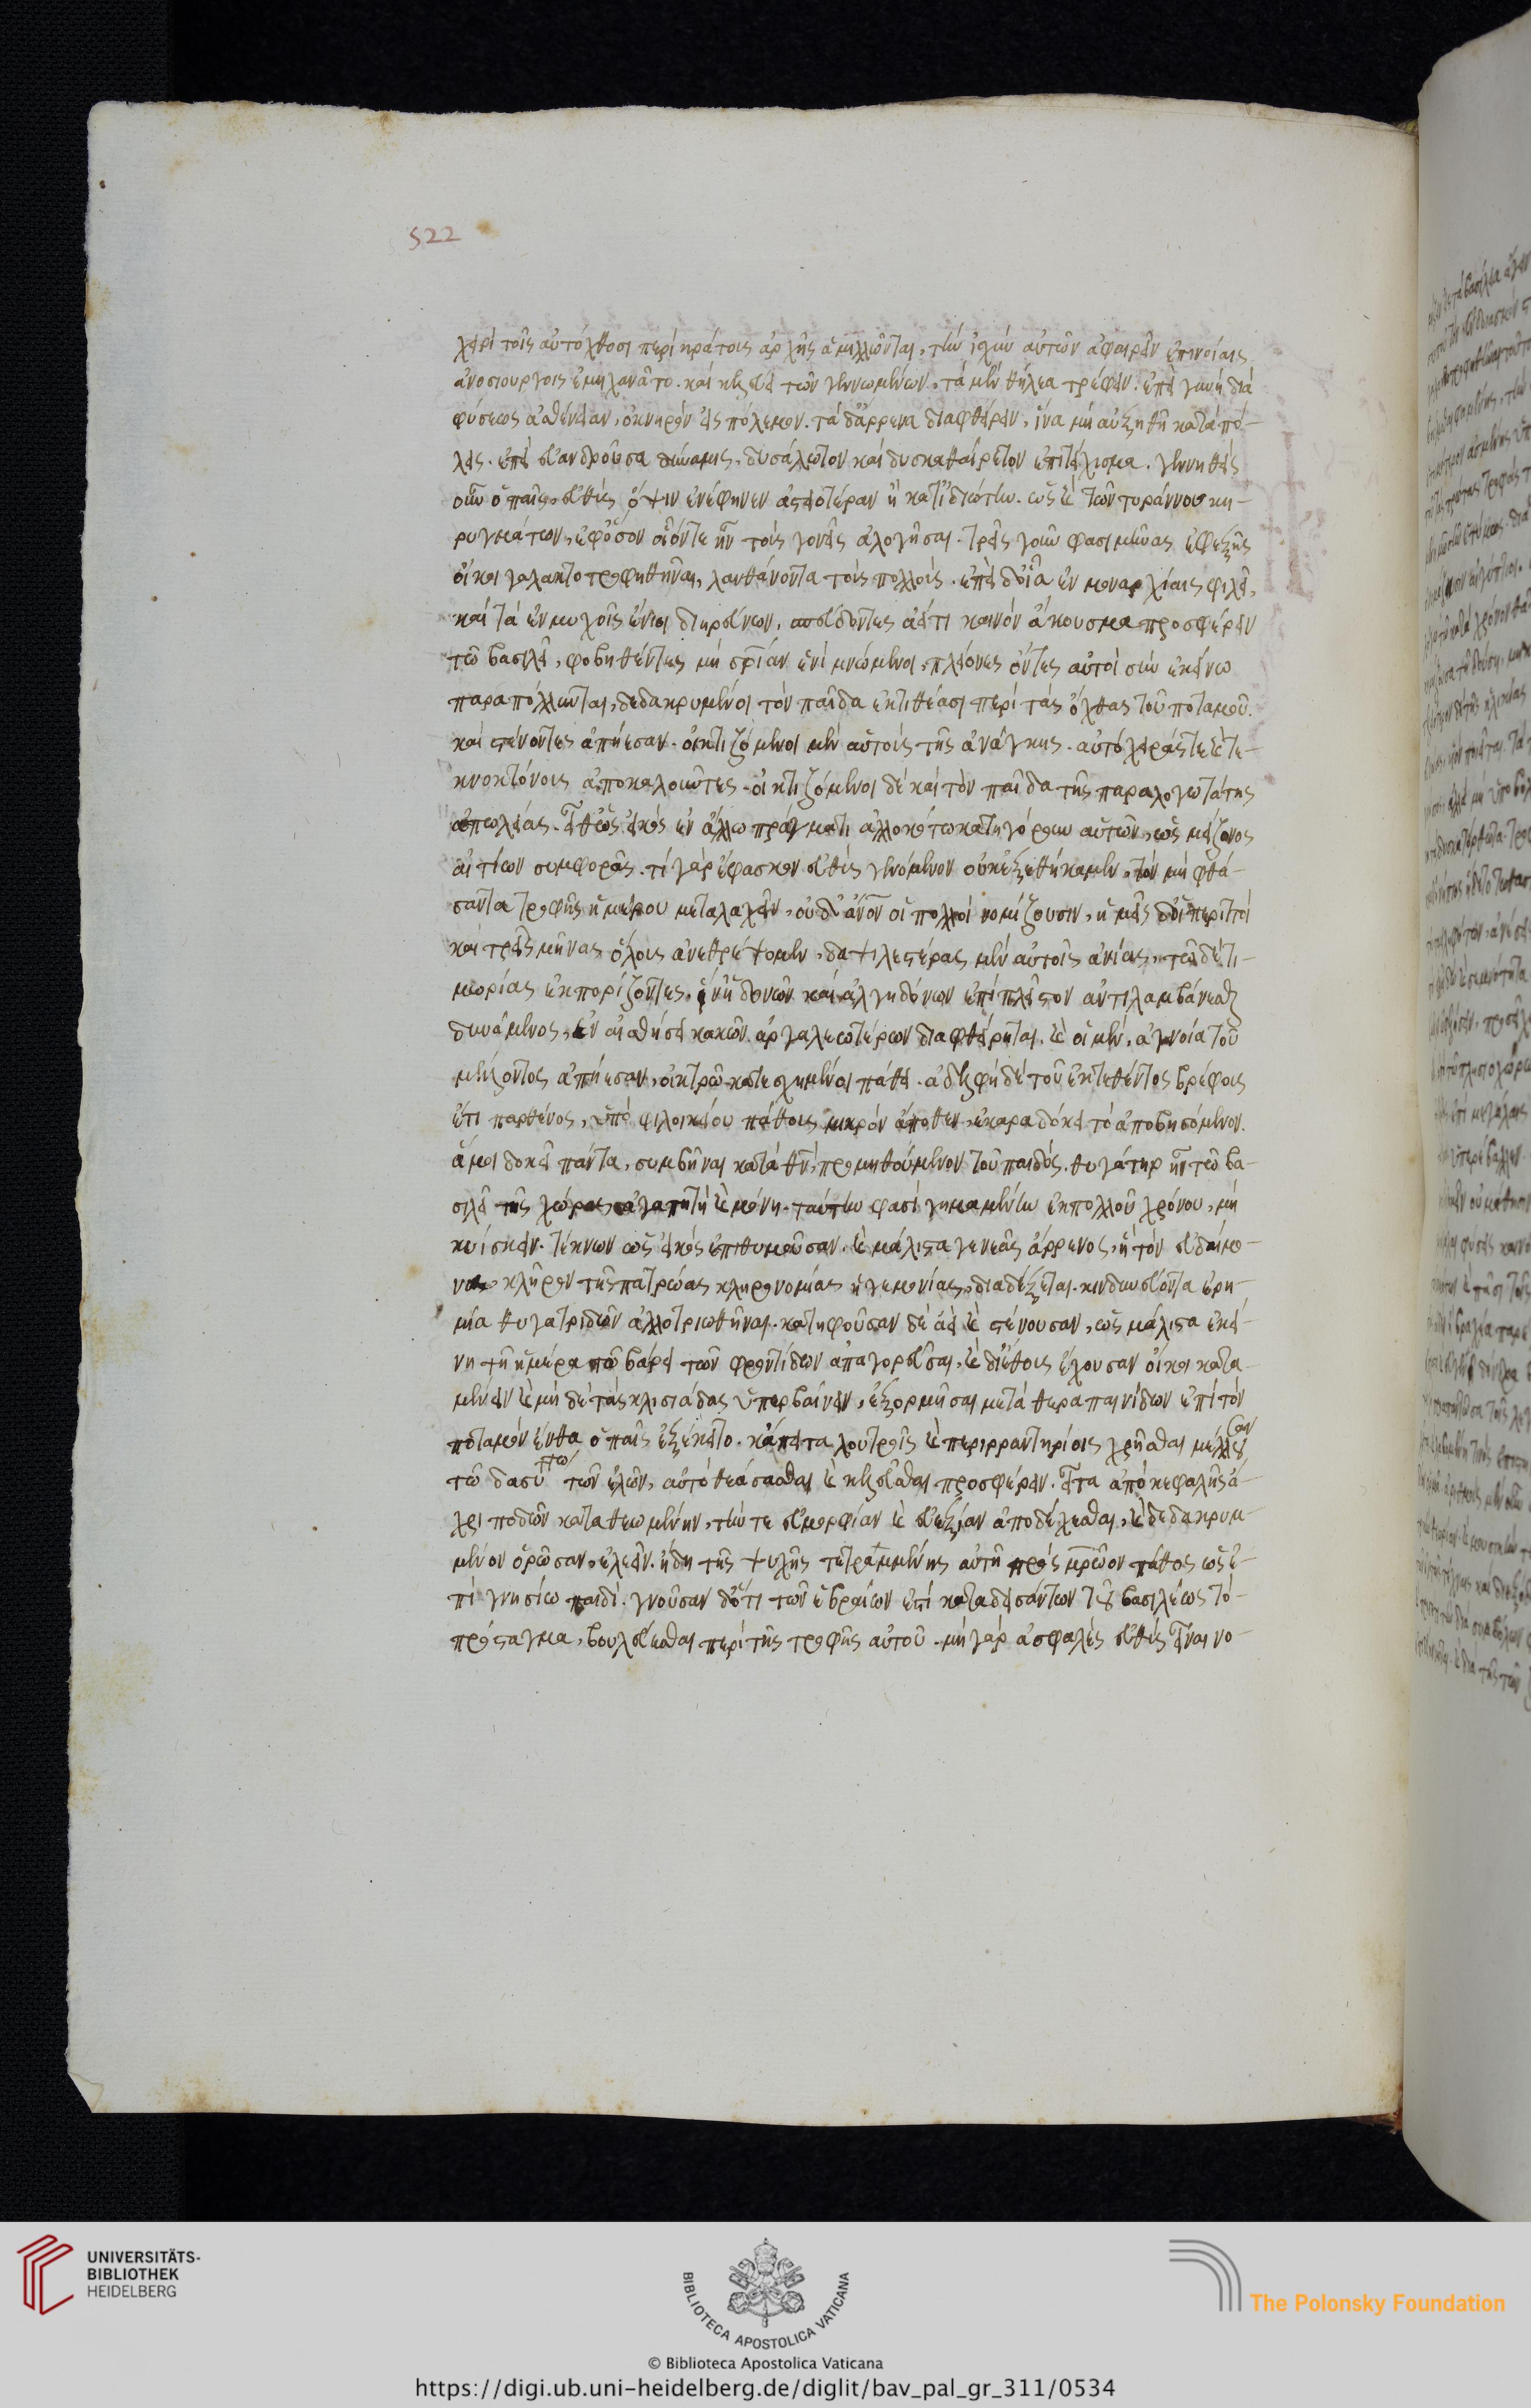 522
χειρὶ τοῖς αὐτόχθοσι περὶ κράτους ἀρχῆς ἁμιλλῶνται, τὴν ἰσχὺν αὐτῶν ἀφαιρεῖν ἐπινοίαις
ἀνοσιουργοῖς ἐμηχανᾶτο. καὶ κελεύει τῶν γεννωμένων, τὰ μὲν θήλεα τρέφειν. ἐπεὶ γυνὴ διὰ
φύσεως ἀσθένειαν, ὀκνηρὸν εἰς πόλεμον. τὰ δ' ἄρρενα διαφθείρειν, ἵνα μὴ αὐξηθῆ κατὰ πό-
λεις. ἐπεὶ εὐανδροῦσα δύναμις, δυσάλωτον καὶ δυσκαθαίρετον ἐπιτείχισμα. γεννηθεὶς
οὖν ὁ παῖς, εὐθὺς ὄψιν ἐνέφηνεν ἀστειοτέραν ἢ κατ' ἰδιώτην. ὡς καὶ τῶν τυράννου κη-
ρυγμάτων, ἐφ' ὅσον οἷόν τε ἦν τοὺς γονεῖς ἀλογῆσαι. τρεῖς γοῦν φασι μῆνας ἐφεξῆς
οἴκοι γαλακτοτροφηθῆναι, λανθάνοντα τοὺς πολλούς. ἐπεὶ δ' οἷα ἐν μοναρχίαις φιλεῖ,
καὶ τὰ ἐν μυχοῖς ἔνιοι διηρεύνων, σπεύδοντες ἀεί τι καινὸν ἄκουσμα προσφέρειν
τῶ βασιλεῖ, φοβηθέντες μὴ σωτηρίαν ἑνὶ μνώμενοι, πλείονες ὄντες αὐτοὶ σὺν ἐκείνω
παραπόλλωνται, δεδακρυμένοι τὸν παῖδα ἐκτιθέασι περὶ τὰς ὄχθας τοῦ ποταμοῦ.
καὶ στένοντες ἀπήεσαν. οἰκτιζόμενοι μὲν αὑτοὺς τῆς ἀνάγκης. αὐτόχειράς τε καὶ τε-
κνοκτόνους ἀποκαλοῦντες. οἰκτιζόμενοι δὲ καὶ τὸν παῖδα τῆς παραλογωτάτης
ἀπωλείας. εἶθ' ὡς εἰκὸς ἐν ἀλλοκότω πράγματι κατηγόρουν αὑτῶν, ὡς μείζονος
αἰτίων συμφορᾶς. τί γὰρ ἔφασκον εὐθὺς γενόμενον οὐκ ἐξεθήκαμεν, τὸν μὴ φθά-
σαντα τροφῆς ἡμέρου μεταλαχεῖν, οὐδ' ἄνθρωπον οἱ πολλοὶ νομίζουσιν, ἡμεῖς δ' οἱ περιττοὶ
καὶ τρεῖς μῆνας ὅλους ἀνεθρέψομεν, δαψιλεστέρας μὲν αὑτοῖς ἀνίας, τῶ δὲ τι-
μωρίας ἐκπορίζοντες, ἵν' ἡδονῶν καὶ ἀλγηδόνων ἐπιπλεῖστον ἀντιλαμβάνεσθαι
δυνάμενος, ἐν αἰσθήσει κακῶν ἀργαλεωτέρων διαφθείρηται. καὶ οἱ μὲν, ἀγνοία τοῦ
μέλλοντος ἀπήεσαν, οἰκτρῶ κατεσχημένοι πάθει. ἀδελφὴ δὲ τοῦ ἐκτεθέντος βρέφους
ἔτι παρθένος, ὑπὸ φιλοικείου πάθους μικρὸν ἄποθεν, ἐκαραδόκει τὸ ἀποβησόμενον.
ἅ μοι δοκεῖ πάντα, συμβῆναι κατὰ θεὸν, προμηθούμενον τοῦ παιδός. θυγάτηρ ἦν τῶ βα-
σιλεῖ τῆς χώρας ἀγαπητὴ καὶ μόνη. ταύτην φασὶ γημαμένην ἐκ πολλοῦ χρόνου, μὴ
κυΐσκειν. τέκνων ὡς εἰκὸς ἐπιθυμοῦσαν. καὶ μάλιστα γενεᾶς ἄρρενος, ἣ τὸν εὐδαίμο-
να κλῆρον τῆς πατρώας κληρονομίας ἡγεμονίας, διαδέξεται. κινδυνεύοντα ἐρη-
μία θυγατριδῶν ἀλλοτριωθῆναι. κατηφοῦσαν δὲ ἀεὶ καὶ στένουσαν, ὡς μάλιστα ἐκεί-
νη τῆ ἡμέρα τῶ βάρει τῶν φροντίδων ἀπαγορεῦσαι, καὶ δι' ἔθους ἔχουσαν οἴκοι κατα-
μένειν καὶ μηδὲ τὰς κλισιάδας ὑπερβαίνειν, ἐξορμῆσαι μετὰ θεραπαινίδων ἐπὶ τὸν
ποταμὸν ἔνθα ὁ παῖς ἐξέκειτο. κἄπειτα λουτροῖς καὶ περιρραντηρίοις χρῆσθαι μέλλουσαν
τῶ δασυτάτω τῶν ἑλῶν, αὐτὸ θεάσασθαι καὶ κελεῦσαι προσφέρειν. εἶτα ἀπὸ κεφαλῆς ἄ-
χρι ποδῶν καταθεωμένην, τήν τε εὐμορφίαν καὶ εὐεξίαν ἀποδέχεσθαι, καὶ δεδακρυμ-
μένον ὁρῶσαν, ἐλεεῖν. ἤδη τῆς ψυχῆς τετραμμένης αὐτῆ πρὸς μητρῶον πάθος ὡς ἐ-
πὶ γνησίω παιδί. γνοῦσαν δ' ὅτι τῶν ἑβραίων ἐστὶ καταδεισάντων τοῦ βασιλέως τὸ
πρόσταγμα, βουλεύεσθαι περὶ τῆς τροφῆς αὐτοῦ. μὴ γὰρ ἀσφαλὲς εὐθὺς εἶναι νο-
UNIVERSITÄTS-
BIBLIOTHEK
HEIDELBERG
BIBLIOTECA APOSTOLICA VATICANA
The Polonsky Foundation
© Biblioteca Apostolica Vaticana
https://digi.ub.uni-heidelberg.de/diglit/bav_pal_gr_311/0534